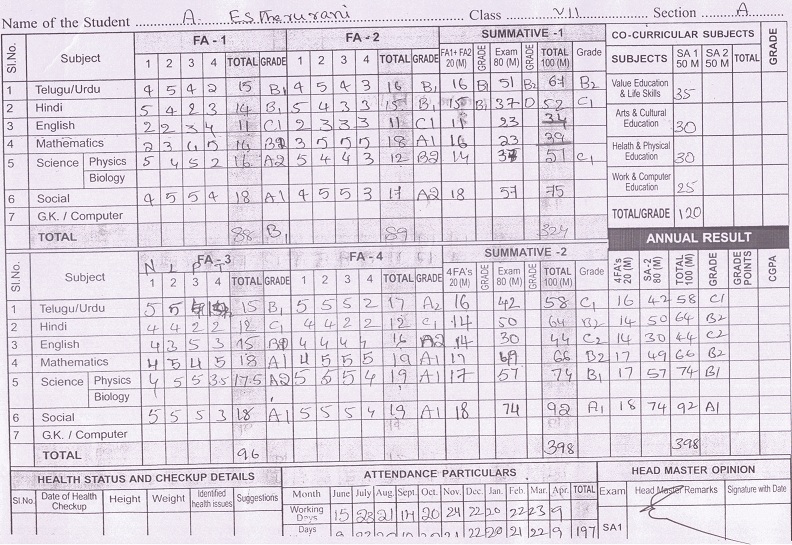 Name of the Student A. Estharurani Class VII Section A
Sl.No. Subject FA - 1 FA - 2 SUMMATIVE -1 CO-CURRICULAR SUBJECTS GRADE
1 2 3 4 TOTAL GRADE 1 2 3 4 TOTAL GRADE FA1+ FA2 20 (M) GRADE Exam 80 (M) GRADE TOTAL 100 (M) Grade SUBJECTS SA 1 50 M SA 2 50 M TOTAL
1 Telugu/Urdu 4 5 4 2 15 B1 4 5 4 3 16 B1 16 B1 51 B2 67 B2 Value Education & Life Skills 35
2 Hindi 5 4 2 3 14 B1 5 4 3 3 15 B1 15 B1 37 D 52 C1
3 English 2 2 3 4 11 C1 2 3 3 3 11 C1 11 23 34 Arts & Cultural Education 30
4 Mathematics 2 3 5 18 A1 16 23 39 Helath & Physical Education 30
5 Science Physics 5 4 5 2 16 A2 5 4 4 3 12 B2 14 51 C1
Biology Work & Computer Education 25
6 Social 4 5 5 4 18 A1 4 5 5 3 17 A2 18 57 75
7 G.K. / Computer TOTAL/GRADE 120
TOTAL 88 B1 89 324
ANNUAL RESULT
Sl.No. Subject FA - 3 FA - 4 SUMMATIVE -2
N L P T
1 2 3 4 TOTAL GRADE 1 2 3 4 TOTAL GRADE 4FA's 20 (M) GRADE Exam 80 (M) GRADE TOTAL 100 (M) Grade 4FA's 20 (M) SA-2 80 (M) TOTAL 100 (M) GRADE GRADE POINTS CGPA
1 Telugu/Urdu 5 5 15 B1 5 5 5 2 17 A2 16 42 58 C1 16 42 58 C1
2 Hindi 4 4 2 2 12 C1 4 4 2 2 12 C1 14 50 64 B2 14 50 64 B2
3 English 4 3 5 3 15 4 4 4 4 16 A2 14 30 44 C2 14 30 44 C2
4 Mathematics 4 5 4 5 18 A1 4 5 5 5 19 A1 17 49 66 B2 17 49 66 B2
5 Science Physics 4 5 5 3.5 17.5 A2 5 5 5 4 19 A1 17 57 74 B1 17 57 74 B1
Biology
6 Social 5 5 5 3 18 A1 5 5 5 4 19 A1 18 74 92 A1 18 74 92 A1
7 G.K. / Computer
TOTAL 96 398 398
HEALTH STATUS AND CHECKUP DETAILS ATTENDANCE PARTICULARS HEAD MASTER OPINION
Sl.No. Date of Health Checkup Height Weight Identified health issues Suggestions Month June July Aug. Sept. Oct. Nov. Dec. Jan. Feb Mar. Apr. TOTAL Exam Head Master Remarks Signature with Date
Working Days 15 23 21 14 20 24 22 20 22 23 9
Days 22 20 21 22 9 197 SA1